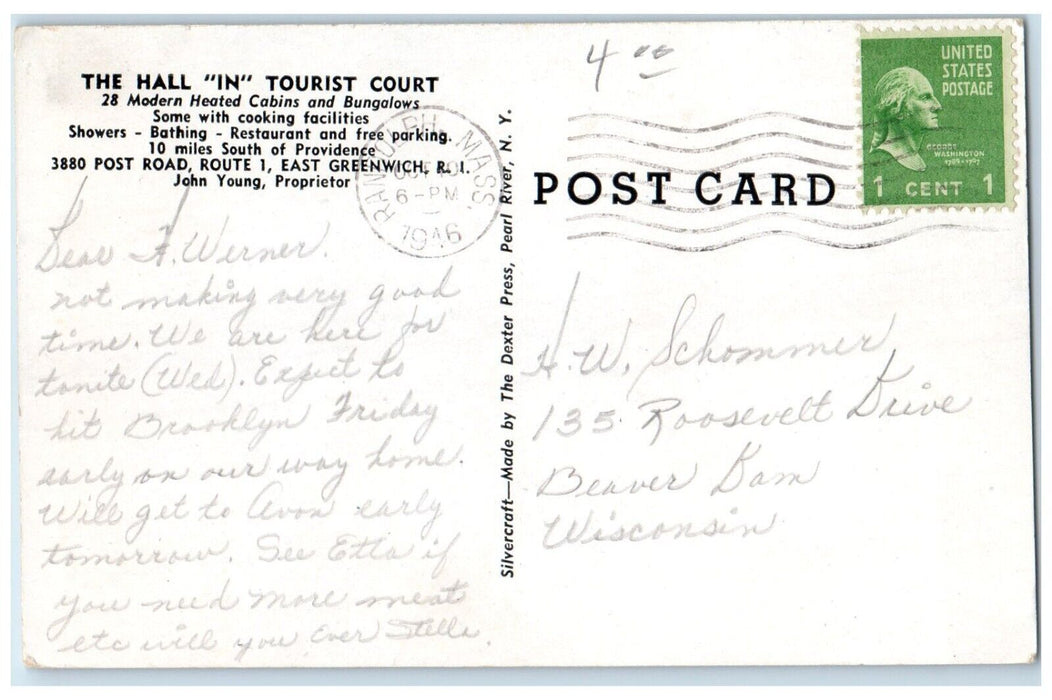 THE HALL "IN" TOURIST COURT
28 Modern Heated Cabins and Bungalows
Some with cooking facilities
Showers - Bathing - Restaurant and free parking.
10 miles South of Providence
3880 POST ROAD, ROUTE 1, EAST GREENWICH, R. I.
John Young, Proprietor
Dear H. Werner.
not making very good
time. We are here for
tonite (Wed). Expect to
hit Brooklyn Friday
early on our way home.
Will get to Avon early
tomorrow. See Etta if
you need more meat
etc will you Ever Stella.
Silvercraft—Made by The Dexter Press, Pearl River, N. Y.
RANDOLPH, MASS.
6-PM
1946
4 00
UNITED
STATES
POSTAGE
GEORGE
WASHINGTON
1789-1797
1 CENT 1
POST CARD
H. W. Schommer
135 Roosevelt Drive
Beaver Dam
Wisconsin